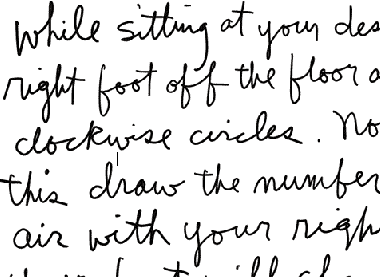 while sitting at your des
right foot off the floor a
clockwise circles. No
this draw the number
air with your righ